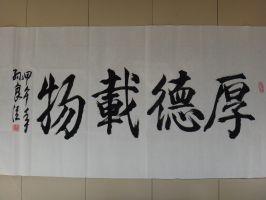 厚德載物
甲午年